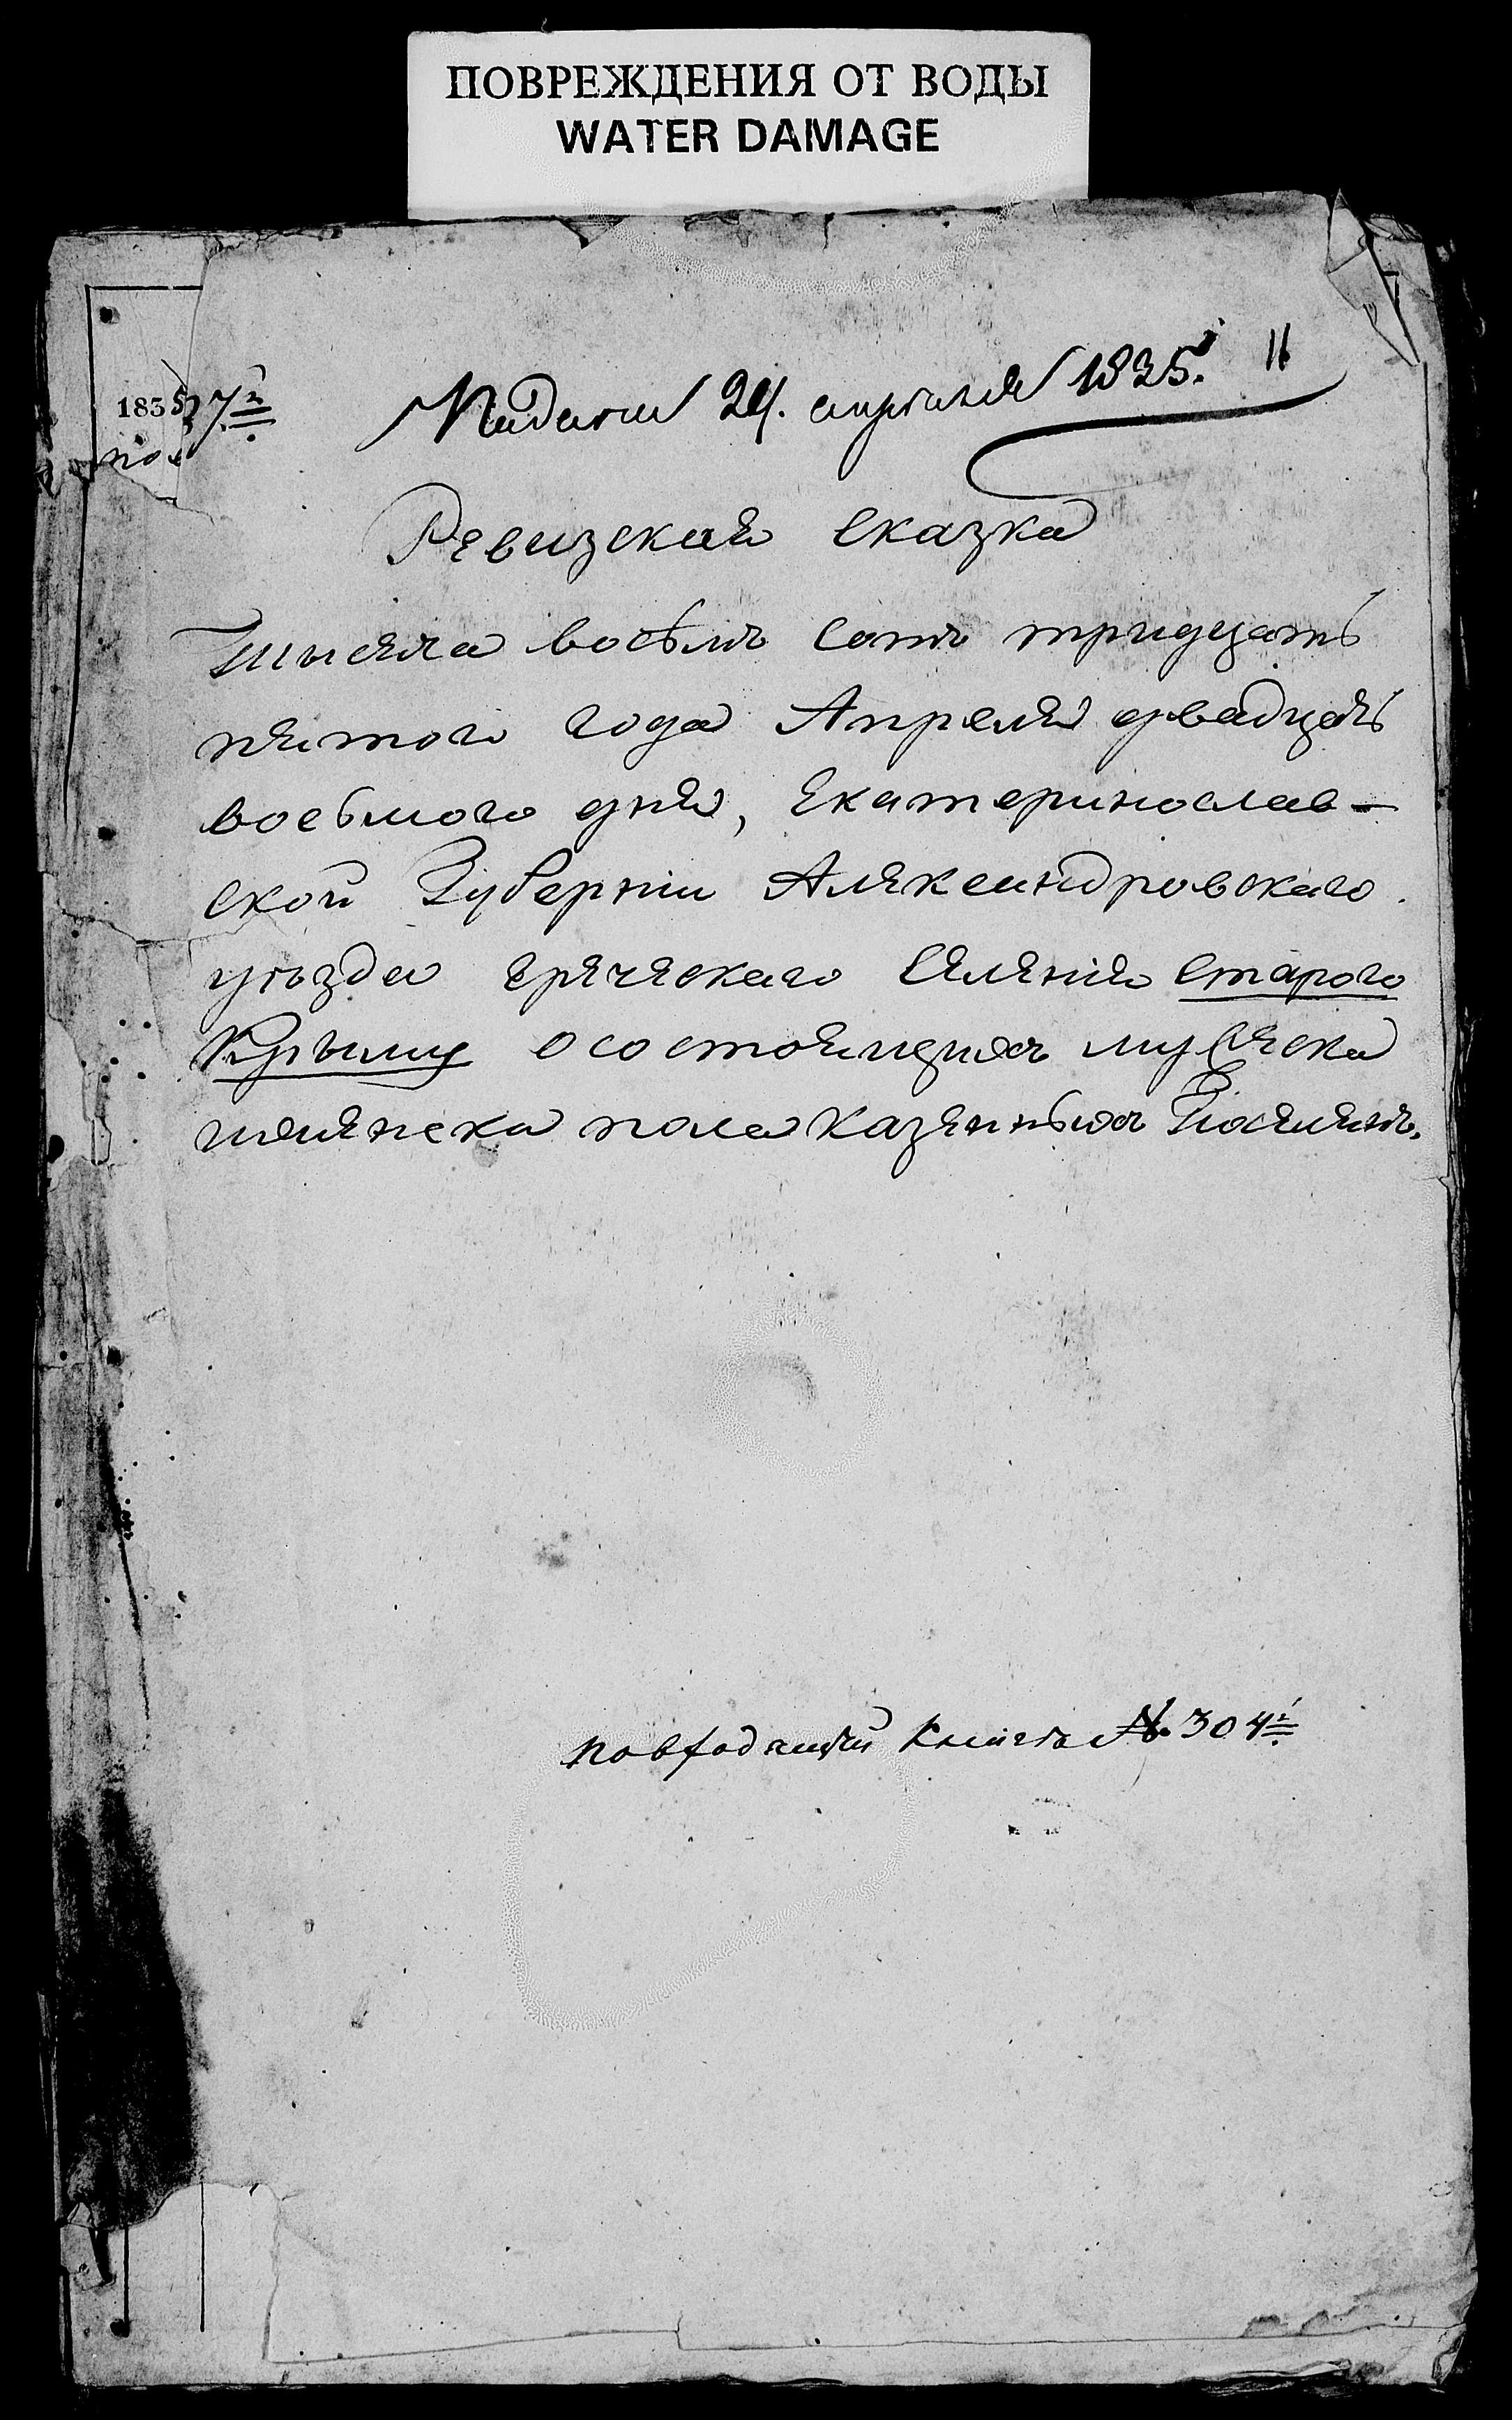 ПОВРЕЖДЕНИЯ ОТ ВОДЫ
WATER DAMAGE
11
Подани 24. апреля 1835.
1835 7й
по
Ревизская Сказка
Тысяча восѣмъ сотъ тридцать
пятого года Апреля двадцать
восьмого дня, Екатеринослав-
ской Губерніи Александровскаго
уѣзда греческаго Селенія Старого
Крыму о состоящихъ мужеска
и женска пола казенныхъ Поселянъ.
По входящей Книгѣ № 304й